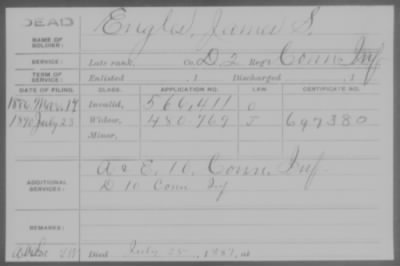 DEAD
NAME OF SOLDIER: Engles, James S.
SERVICE: Late rank, Co. D, 2 Reg't Conn Inf.
TERM OF SERVICE: Enlisted , 1 Discharged , 1
DATE OF FILING. CLASS. APPLICATION NO. LAW. CERTIFICATE NO.
Mar. 19 Invalid, 566,411 O
1890 July 23 Widow, 480.769 J 697380
Minor,
ADDITIONAL SERVICES: A & E. 10. Conn. Inf.
D 10 Conn Inf
REMARKS:
Died July 25, 1887, at